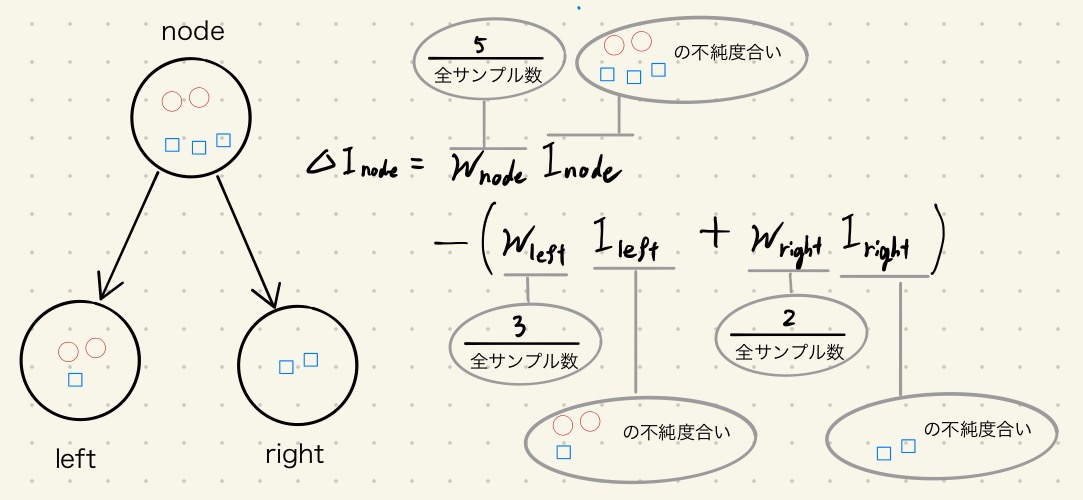 node
5
全サンプル数
の不純度合い
ΔI node = W node I node
- ( W left I left + W right I right )
3
全サンプル数
2
全サンプル数
の不純度合い
の不純度合い
left
right